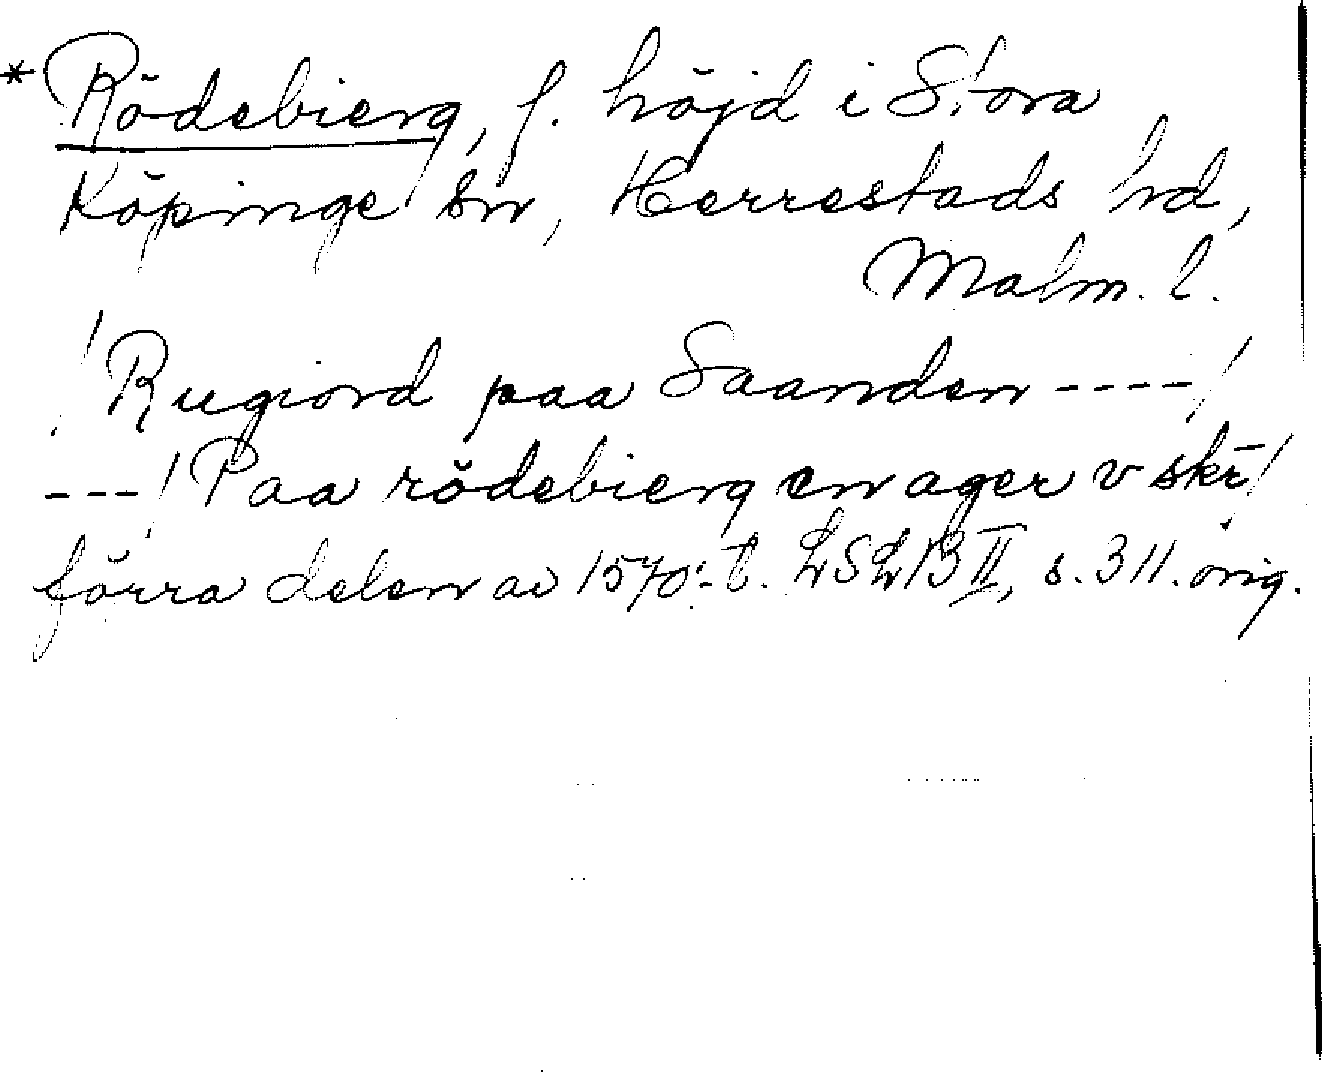 * Rödebierg, f. höjd i Stora
Köpinge sn, Herrestads hd,
Malm. l.
/Rugiord paa Saanden ----/
---/Paa rödebierg en ager v skr̄/
förra delen av 1570-t. LSLB II, s. 311. orig.